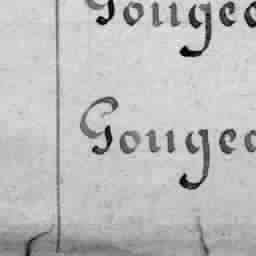 Gougec
Gougea